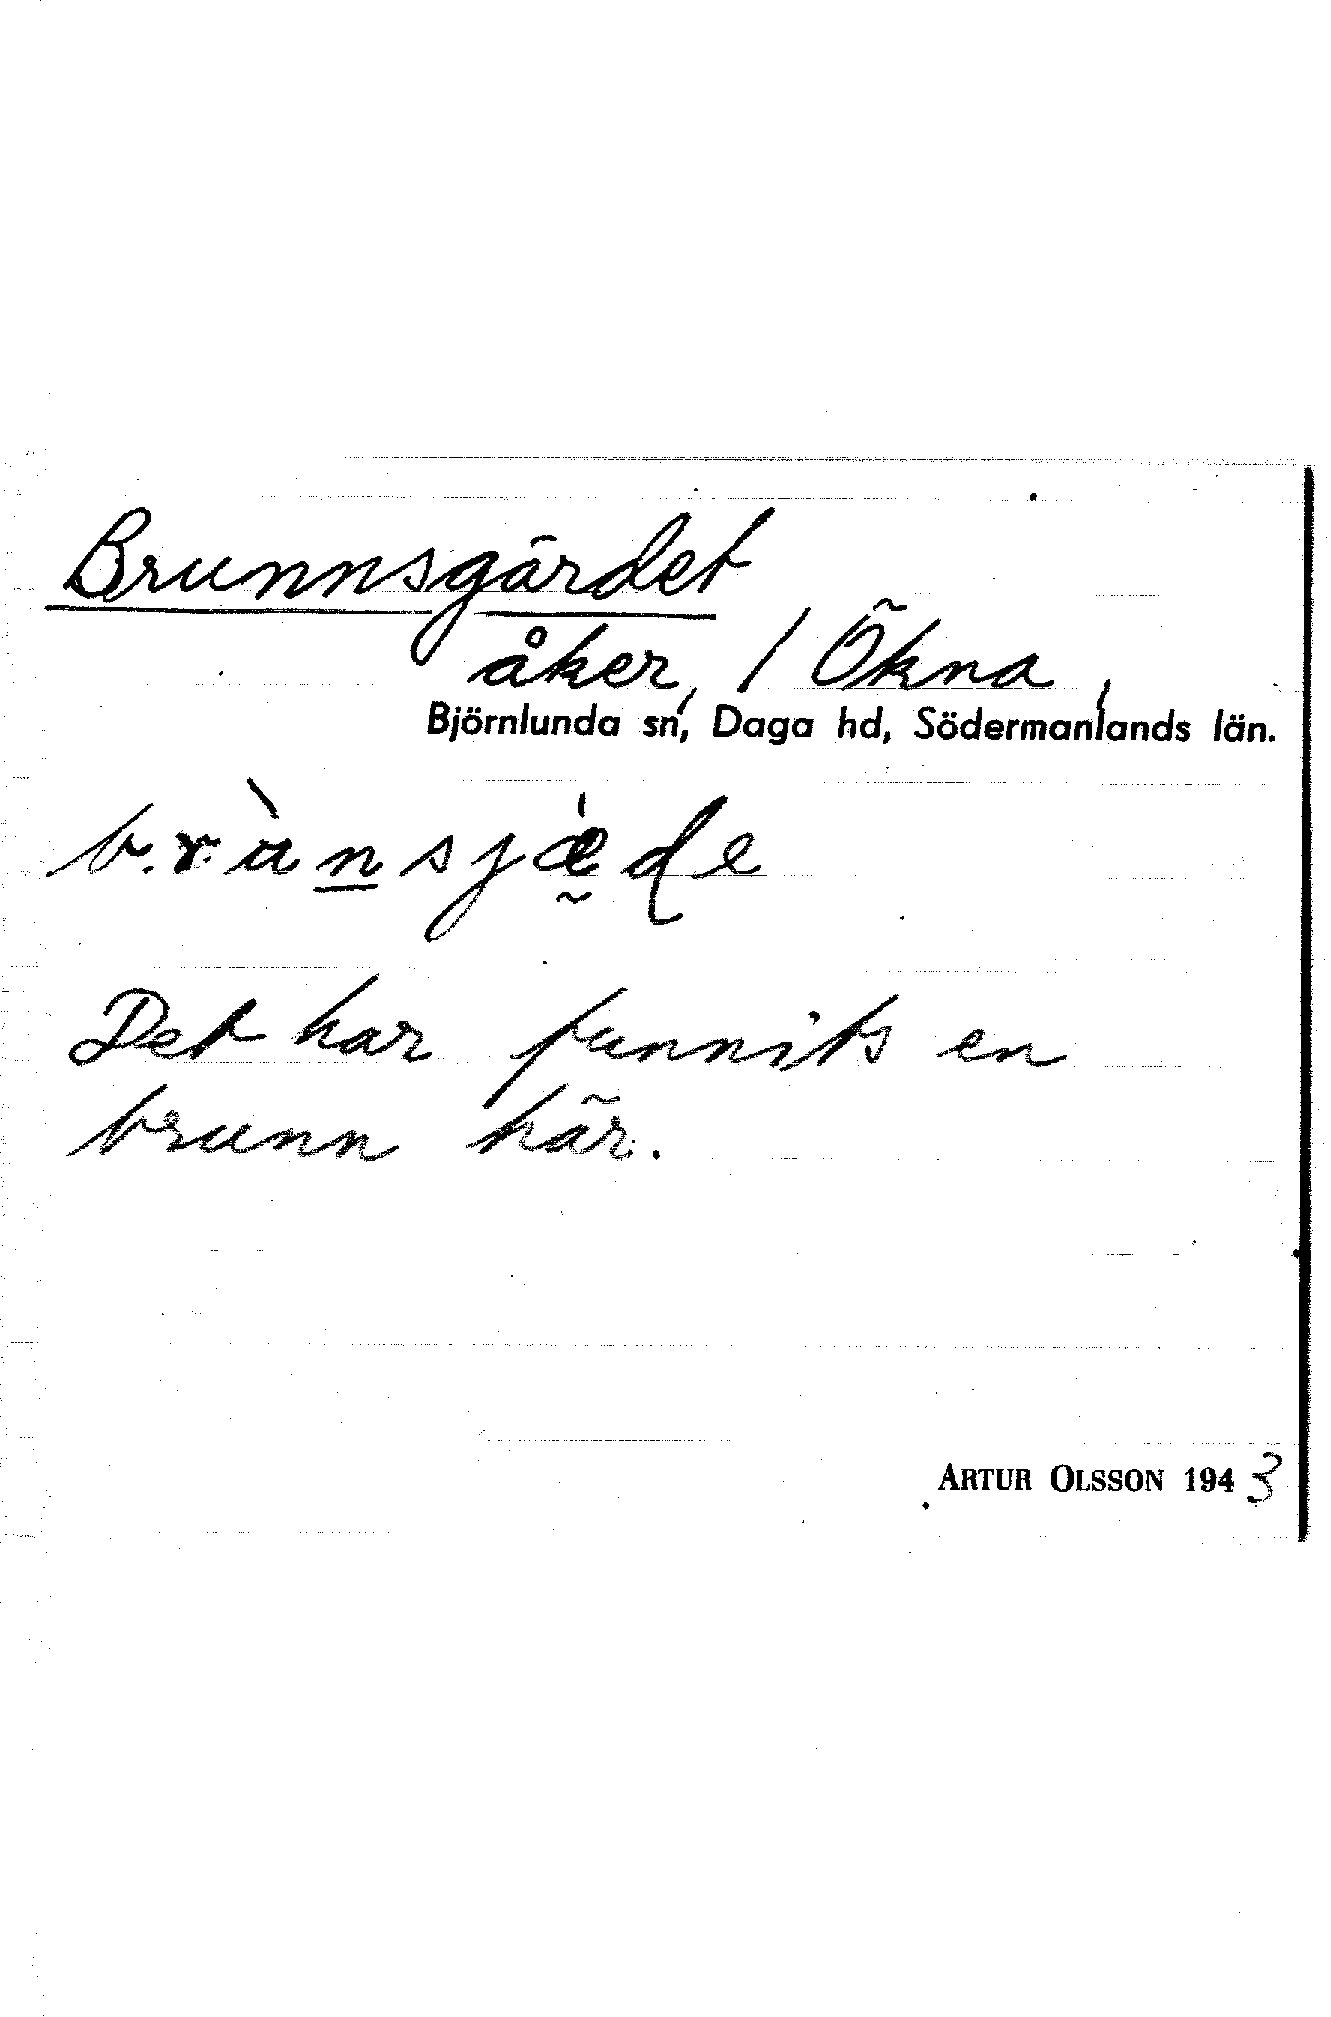 Brunnsgärdet
åker, / Ökna,
Björnlunda sn, Daga hd, Södermanlands län.
Det har funnits en
brunn här.
ARTUR OLSSON 1943